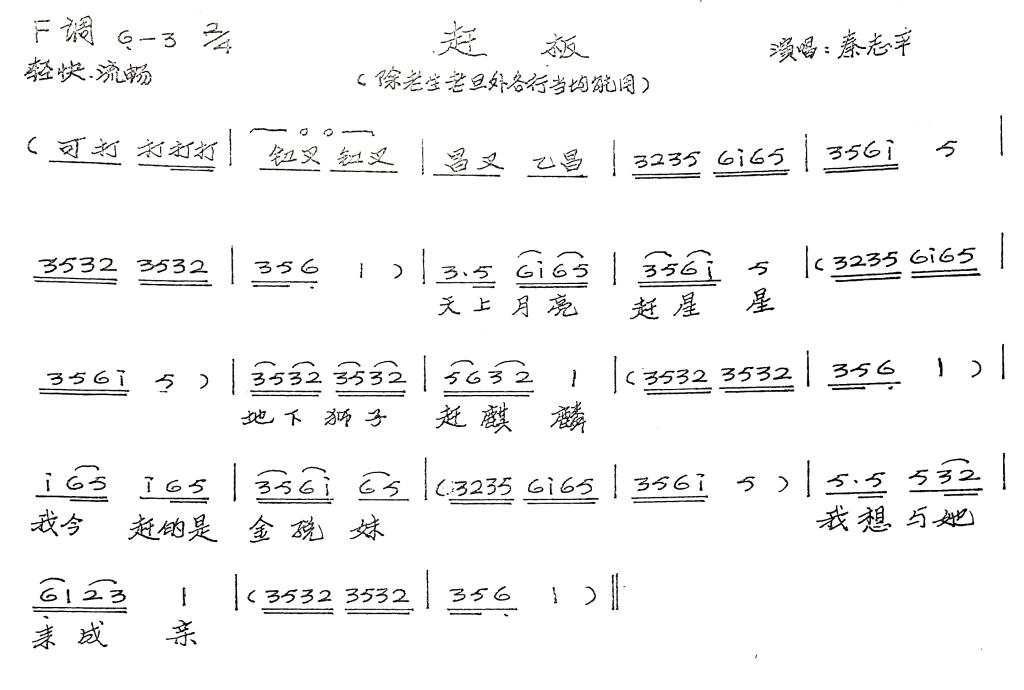 F调 6̣—3 2/4 赶板 演唱：秦志平
轻快.流畅 （除老生老旦外各行当均能用）
（可打 打打打 | 钗叉 钗叉 | 昌叉 乙昌 | 3235 6i65 | 356i 5 |
3532 3532 | 356̣ 1 ） | 3.5 6i65 | 356i 5 | （3235 6i65 |
天上月亮 赶星星
356i 5 ） | 3532 3532 | 5632 1 | （3532 3532 | 356̣ 1 ） |
地下狮子 赶麒麟
i65 i65 | 356i 65 | （3235 6i65 | 356i 5 ） | 5.5 532 |
我今 赶的是 金 妹 我想与她
6̣123 1 | （3532 3532 | 356̣ 1 ） ‖
来成 亲